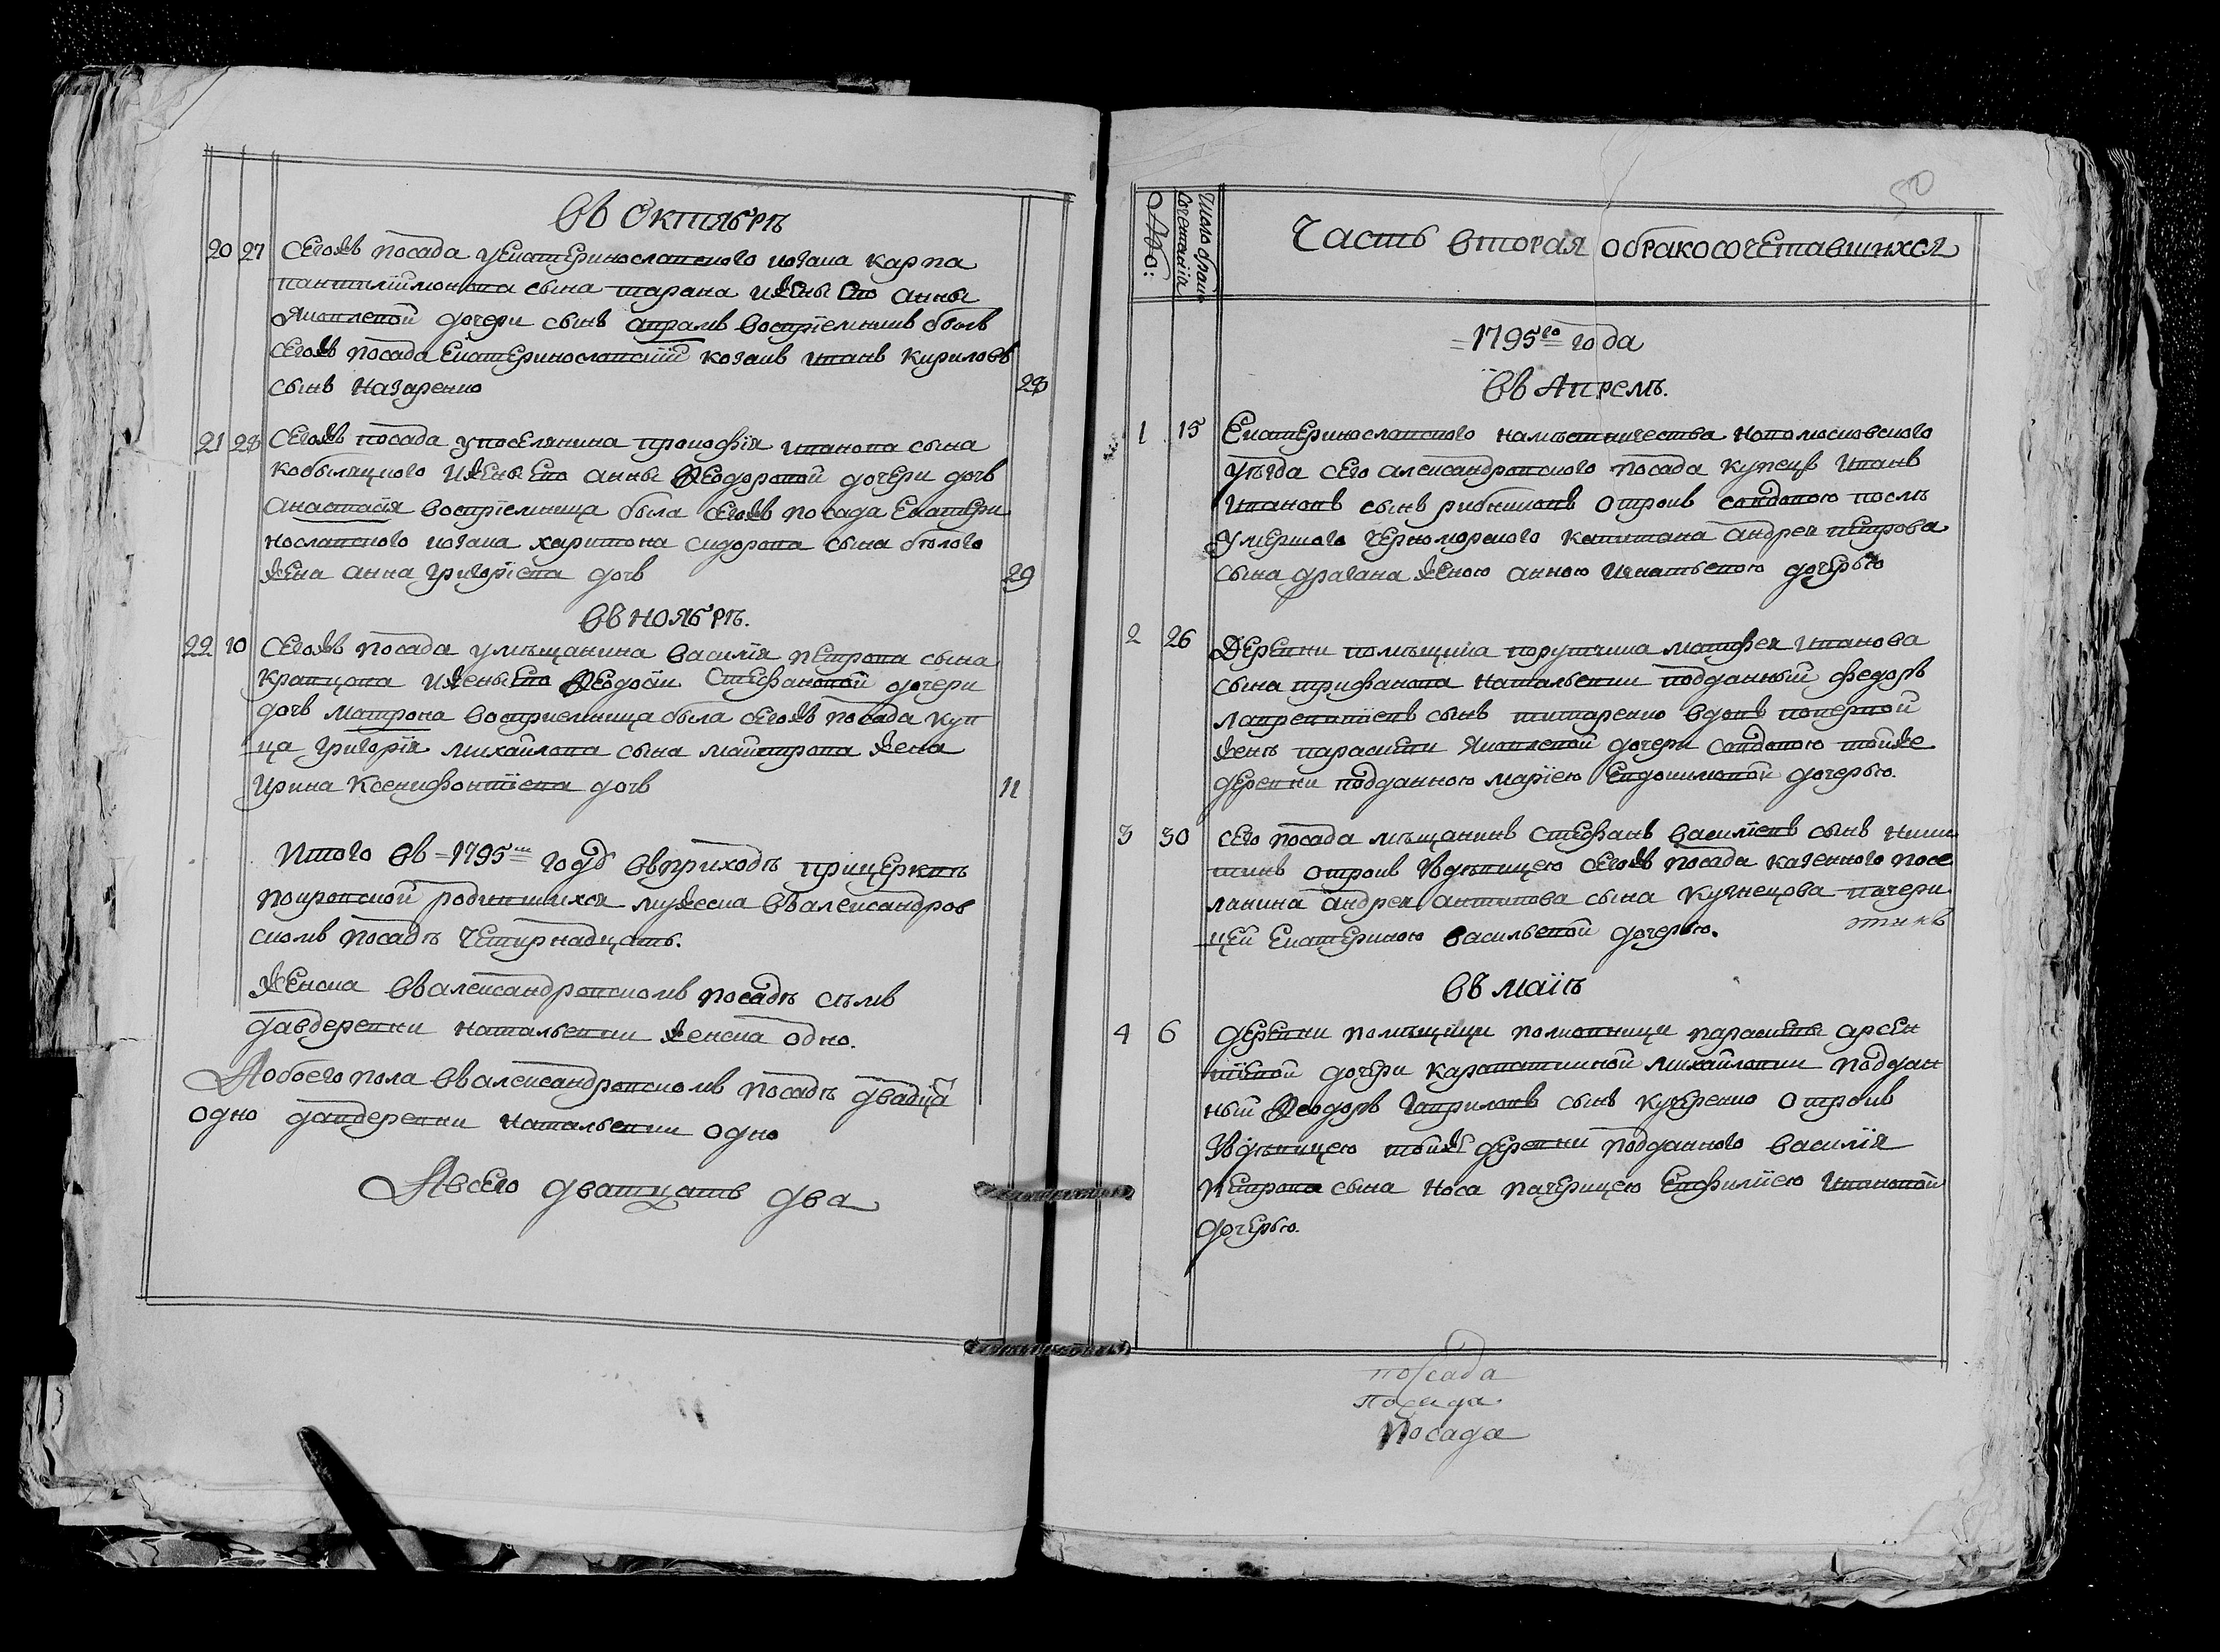 Въ Октябрѣ
20 27 Сегожъ посада уекатеринославского козака карпа
пантилиймонова сына тарана ижены его анны
Яковлевой дочери сынъ авраамъ воспріемникъ былъ
сегожъ посада Екатеринославскій козакъ иванъ кириловъ
сынъ назаренко 28
21 28 Сегожъ посада упоселянина прокофія иванова сына
кобыляцкого ижены его анны Ѳеодоровой дочери дочь
анастасія воспріемница была сегожъ посада Екатери
нославского козака харитона сидорова сына бѣлого
жена анна григоріева дочь 29
Въ ноябрѣ.
22 10 Сегожъ посада умѣщанина василія петрова сына
кравцова ижены его Ѳеодосіи Стефановой дочери
дочь матрона восприемница была сегожъ посада куп
ца григорія михайлова сына майстрова жена
Ирина Ксенифонтіева дочь 11
Итого въ =1795мъ годѣ вприходѣ прицерквѣ
покровской родившихся мужеска валександров
скомъ посадѣ четирнадцать.
женска валександровскомъ посадѣ сѣмъ
давдеревни натальевки женска одно.
Аобоего пола валександровскомъ посадѣ двадца
одно давдеревни натальевки одно
Авсего дватцать два
50
Число брако
сочетанія
Часть вторая обракосочетавшихся
=1795го= года
Въ Апрелѣ.
1 15 Екатеринославского намѣстничества новомосковского
уѣзда сего александровского посада купецъ Иванъ
Ивановъ сынъ рибниковъ отрокъ совдовою послѣ
умершого черноморского капитана андрея петрова
сына драгана женою анною игнатьевою дочерью
2 26 Деревни помѣщика порутчика матфея иванова
сына трифанова натальевки подданный федоръ
лаврентіевъ сынъ титаренко вдовъ попервой
женѣ параскеви Яковлевой дочери совдовою тойже
деревни подданною маріею Евдокимовой дочерью.
3 30 Сего посада мѣщанинъ Стефанъ василіевъ сынъ ники
тинъ отрокъ здѣвицею сегожъ посада казенного посе
лянина андрея антипова сына кузнецова пачери
цей Екатериною васильевой дочерью.
тинъ
Въ маіѣ
4 6 деревни помѣщици полковници параскевы арсен
тіевой дочери каропатниной михайловки поддан
ный Ѳеодоръ Гавриловъ сынъ кучеренко отрокъ
здѣвицею тойже деревни подданного василія
петрова сына носа пачерицею Евфиміею ивановой
дочерью.
посада
посада
посада